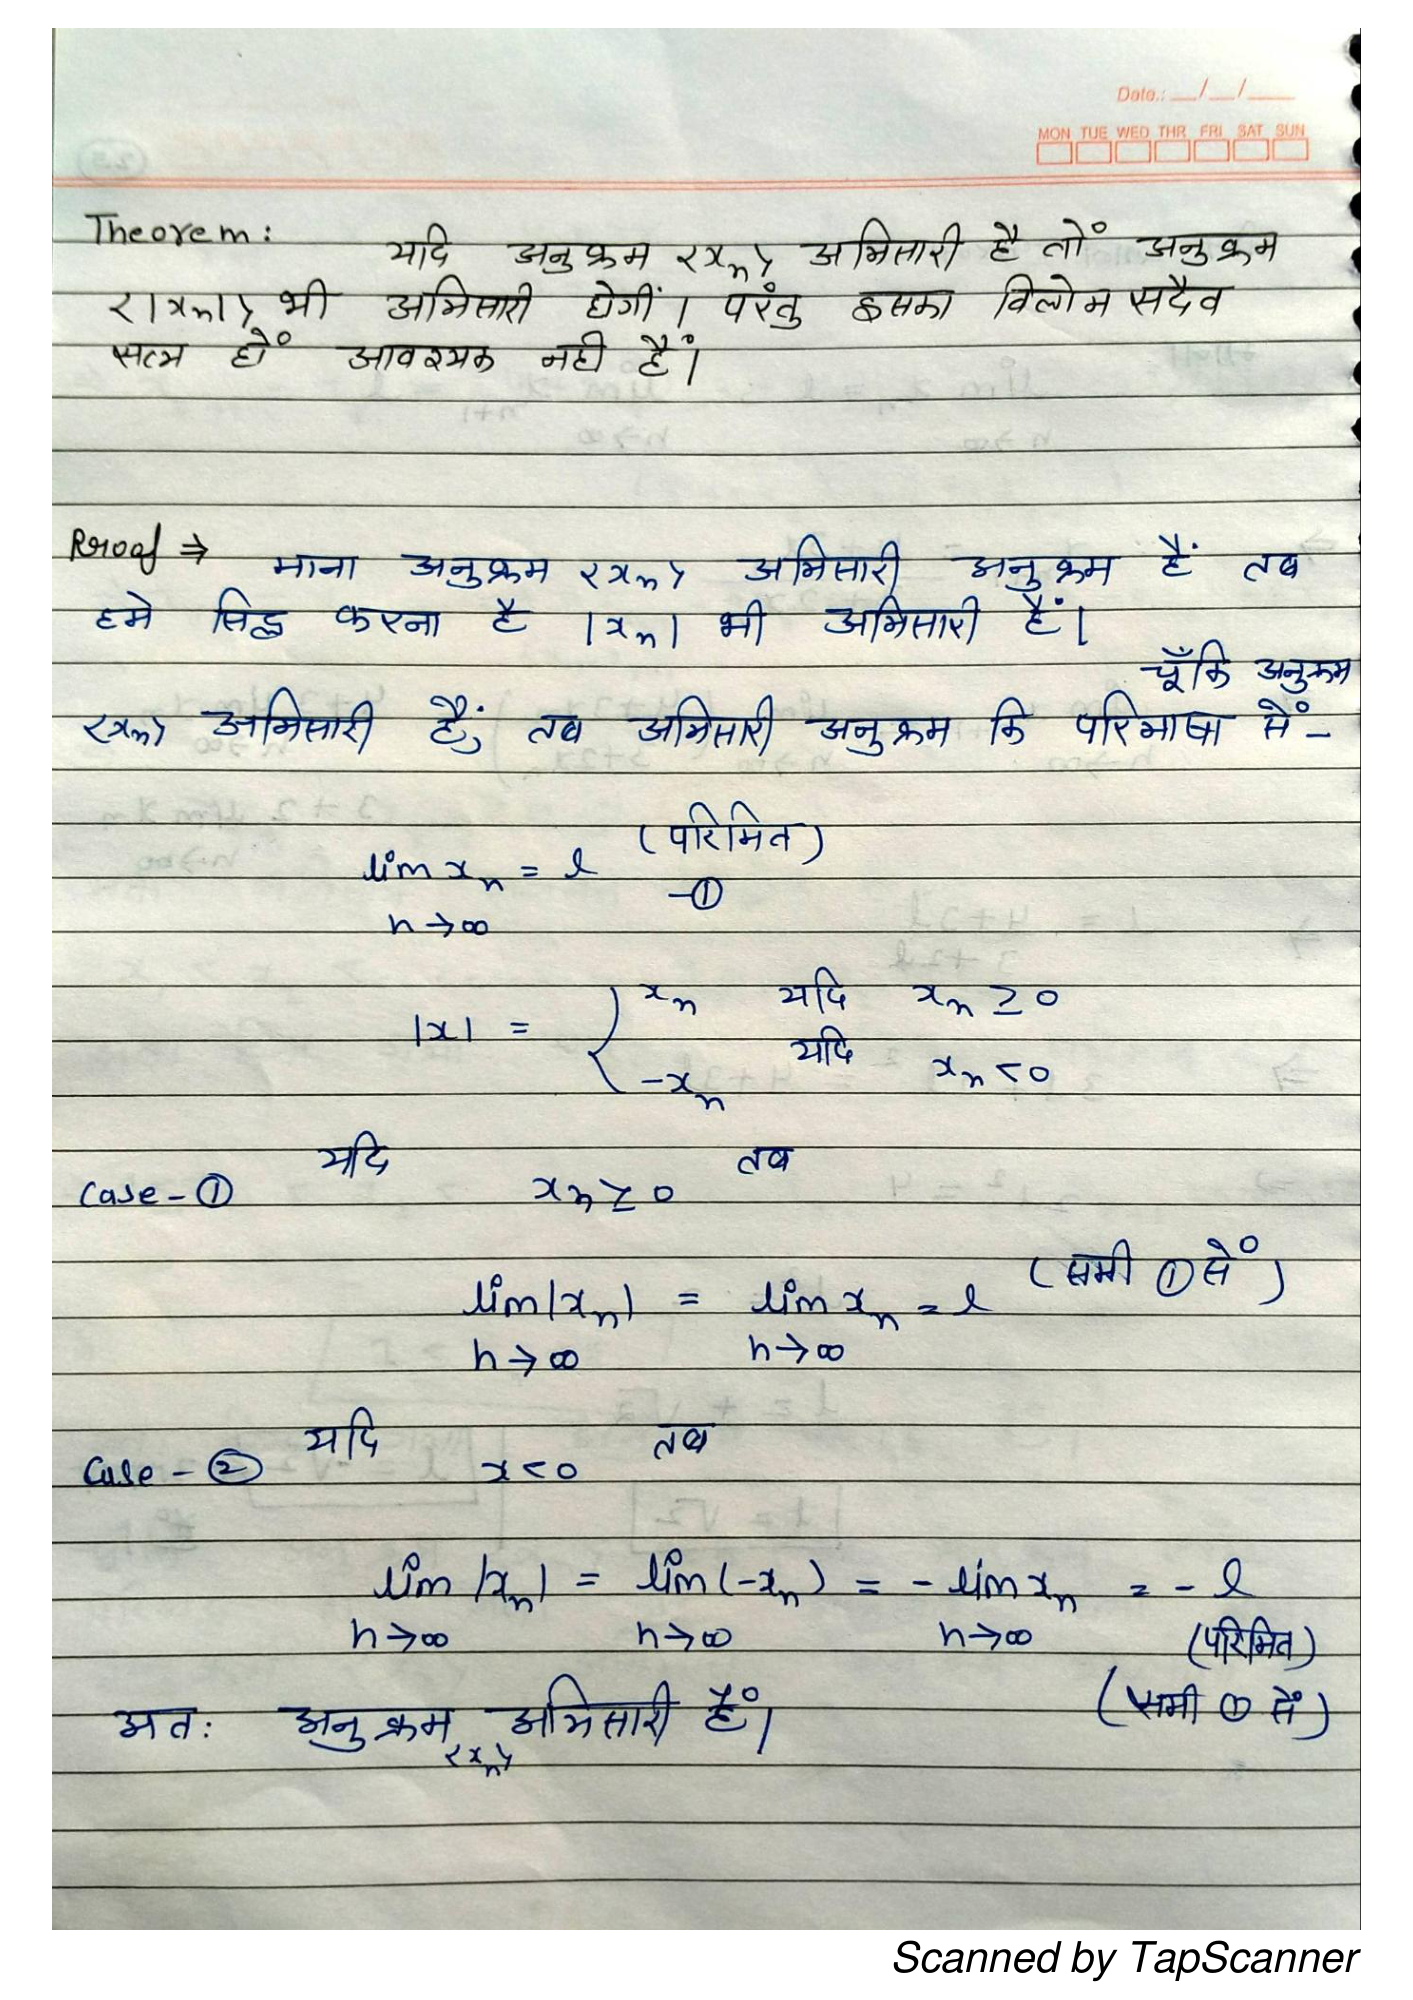 Date.: __/__/___
MON TUE WED THR FRI SAT SUN
Theorem:
यदि अनुक्रम <xn> अभिसारी है तों अनुक्रम
<|xn|> भी अभिसारी होगीं। परंतु इसका विलोम सदैव
सत्य हों आवश्यक नही हैं।
Proof ⇒ माना अनुक्रम <xn> अभिसारी अनुक्रम हैं तब
हमे सिद्ध करना है |xn| भी अभिसारी हैं।
चूँकि अनुक्रम
<xn> अभिसारी हैं; तब अभिसारी अनुक्रम कि परिभाषा सें-
(परिमित)
lim xn = l -①
n→∞
|x| = { xn यदि xn ≥ 0
-xn यदि xn < 0
Case-① यदि xn ≥ 0 तब
lim|xn| = lim xn = l (समी ① सें)
n→∞ n→∞
Case-② यदि x < 0 तब
lim |xn| = lim(-xn) = - lim xn = - l
n→∞ n→∞ n→∞ (परिमित)
(समी ① सें)
अत: अनुक्रम <xn> अभिसारी हैं।
Scanned by TapScanner